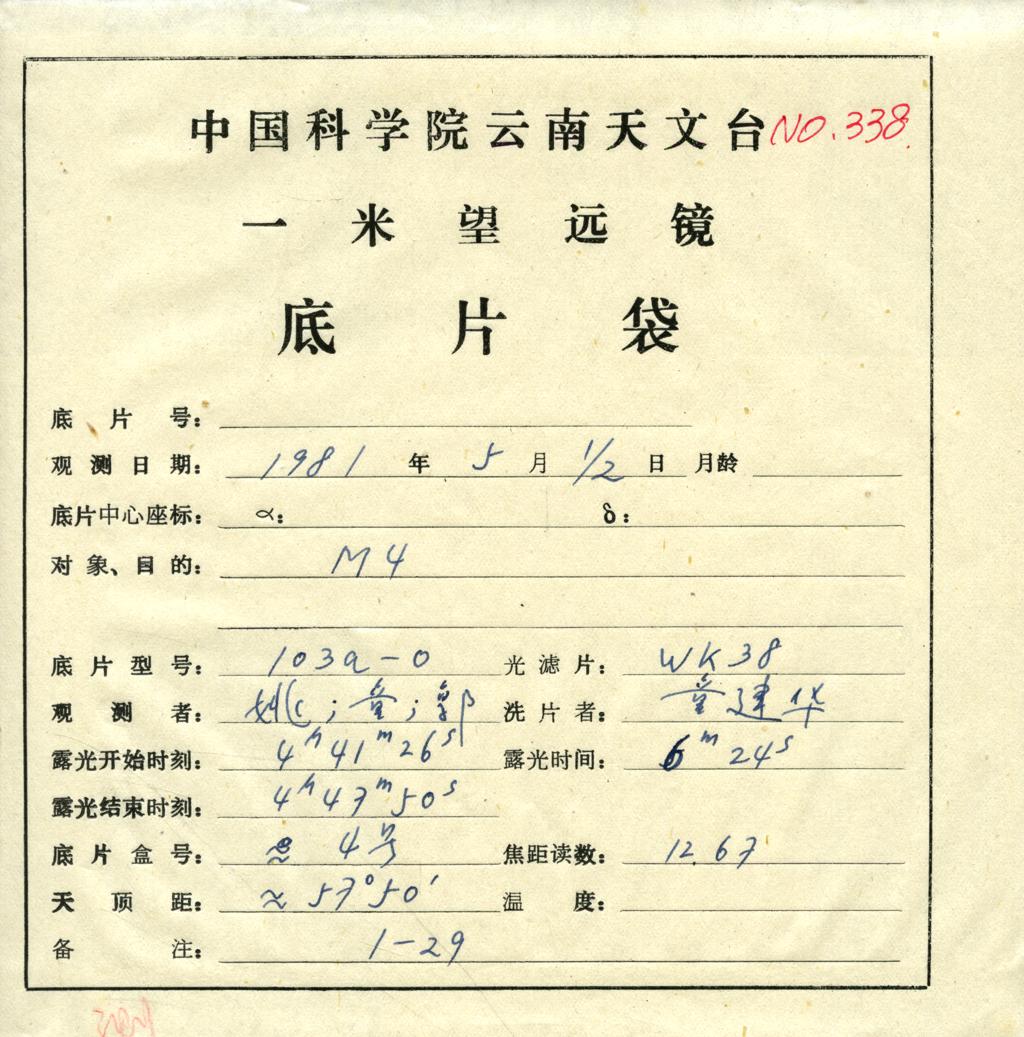 中国科学院云南天文台 NO.338
一米望远镜
底片袋
底片号：
观测日期： 1981 年 5 月 1/2 日 月龄
底片中心座标： α： δ：
对象、目的： M4
底片型号： 103a-O 光滤片： WK38
观测者： ；童；郭 洗片者： 童建华
露光开始时刻： 4h41m26s 露光时间： 6m24s
露光结束时刻： 4h47m50s
底片盒号： 4号 焦距读数： 12.67
天顶距： ≈57°50′ 温度：
备注： 1-29